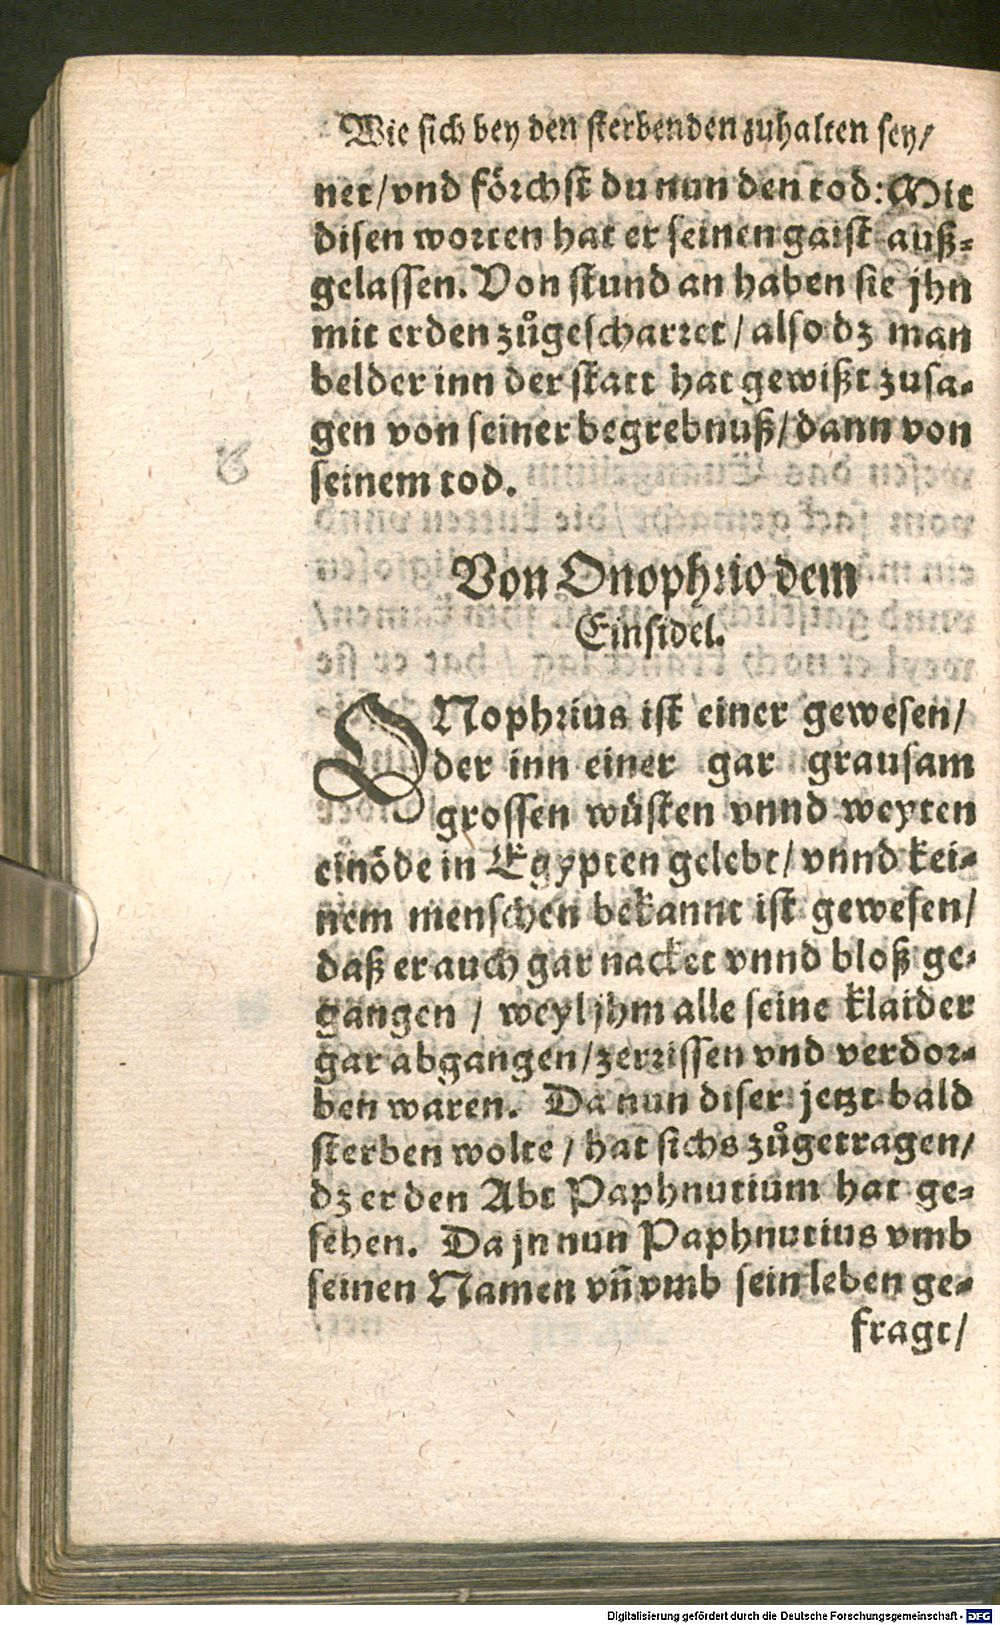 Wie sich bey den sterbenden zuhalten sey/
net/vnd förchst du nun den tod: Mit
disen worten hat er seinen gaist auß-
gelassen. Von stund an haben sie jhn
mit erden zůgescharret/also dz man
belder inn der statt hat gewißt zusa-
gen von seiner begrebnuß/dann von
seinem tod.
Von Onophrio dem
Einsidel.
ONophrius ist einer gewesen/
der inn einer gar grausam
grossen wüsten vnnd weyten
einöde in Egypten gelebt/vnnd kei-
nem menschen bekannt ist gewesen/
daß er auch gar nacket vnnd bloß ge-
gangen / weyl jhm alle seine klaider
gar abgangen/zerrissen vnd verdor-
ben waren. Da nun diser jetzt bald
sterben wolte / hat sichs zůgetragen/
dz er den Abt Paphnutium hat ge-
sehen. Da jn nun Paphnutius vmb
seinen Namen vñ vmb sein leben ge-
fragt/
Digitalisierung gefördert durch die Deutsche Forschungsgemeinschaft - DFG